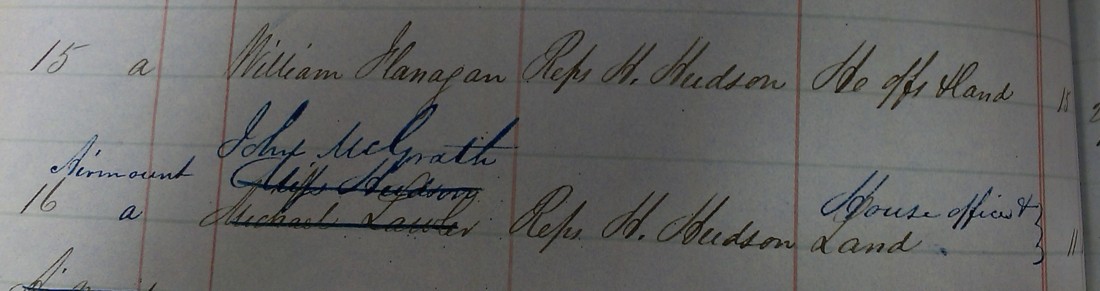 15 a William Flanagan Reps H. Hudson Ho offs & Land 15
John McGrath
Airmount Miss Hudson House offices &
16 a Michael Lawler Reps H. Hudson Land 11